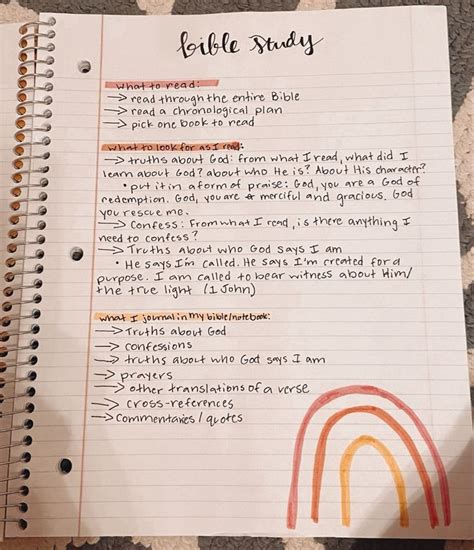 bible study
what to read:
→ read through the entire Bible
→ read a chronological plan
→ pick one book to read
what to look for as I read:
→ truths about God: from what I read, what did I
learn about God? about who He is? About his character?
• put it in a form of praise: God, you are a God of
redemption. God, you are merciful and gracious. God
you rescue me.
→ Confess: From what I read, is there anything I
need to confess?
→ Truths about who God says I am
• He says I'm called. He says I'm created for a
purpose. I am called to bear witness about Him/
the true light (1 John)
what I journal in my bible/notebook:
→ Truths about God
→ confessions
→ truths about who God says I am
→ prayers
→ other translations of a verse
→ cross-references
→ Commentaries / quotes